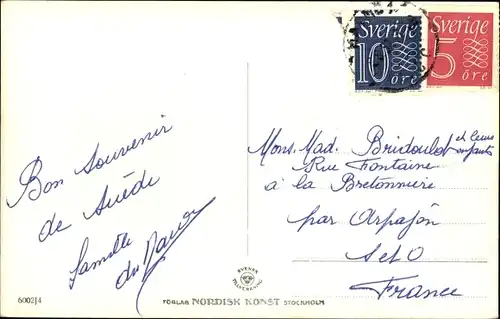 Sverige
10
öre
Sverige
5
öre
Bon Souvenir
de Suède
famille
du
Mons. Mad. Bridoulot et leurs
enfants
Rue Fontaine
a la Bretonniere
par Arpajon
S et O
France
SVENSK
TILLVERKNING
6002/4
FÖRLAG NORDISK KONST STOCKHOLM